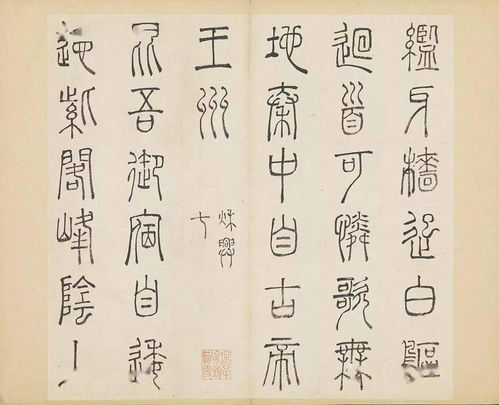 纜牙檣起白鷗
迴首可憐歌舞
地秦中自古帝
王州
秋興
七
昆吾御宿自逶
迤紫閣峰陰入